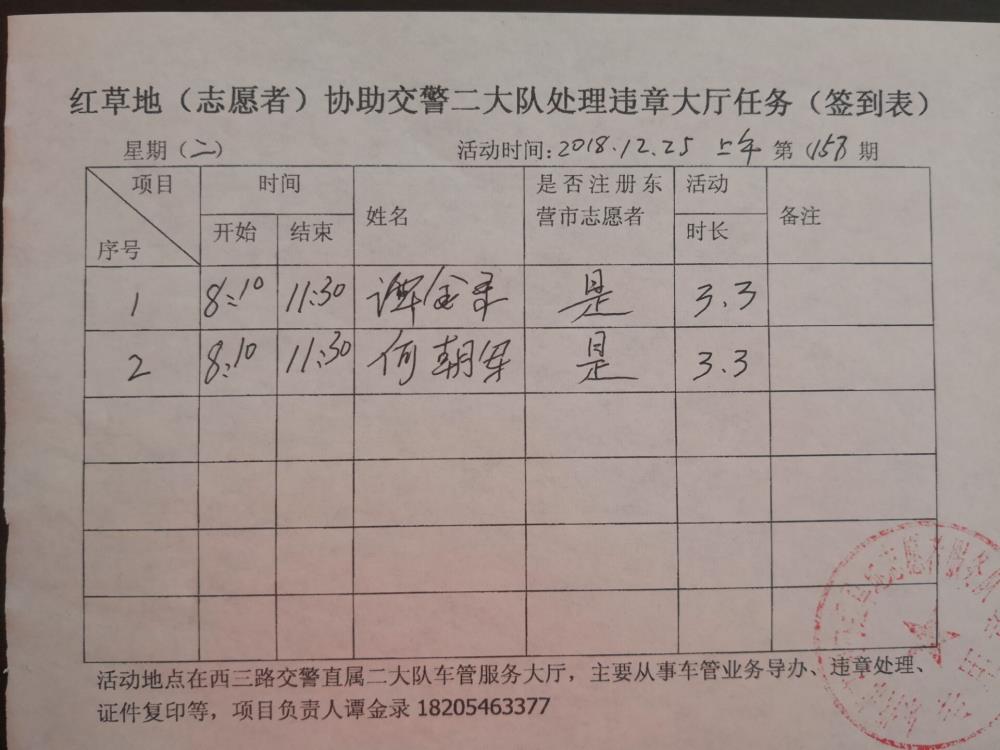 红草地（志愿者）协助交警二大队处理违章大厅任务（签到表）
星期（二） 活动时间：2018.12.25 上午 第（158期
项目 时间 姓名 是否注册东营市志愿者 活动时长 备注
序号 开始 结束
1 8:10 11:30 谭金录 是 3.3
2 8:10 11:30 何朝 是 3.3
活动地点在西三路交警直属二大队车管服务大厅，主要从事车管业务导办、违章处理、
证件复印等，项目负责人谭金录 18205463377
志愿者服务队